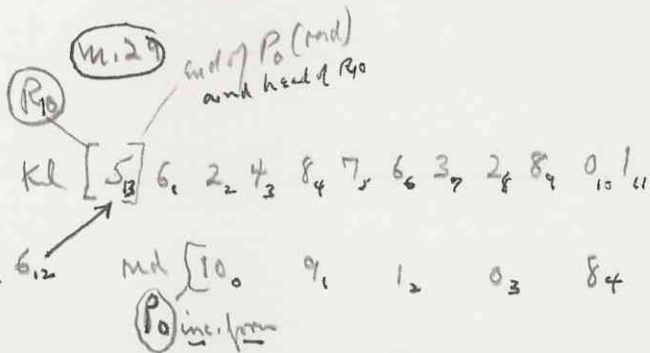 m. 29
end of P₀ (md)
and head of R₁₀
R₁₀
Kl [5₁₃] 6₁ 2₂ 4₃ 8₄ 7₅ 6₆ 3₇ 2₈ 8₉ 0₁₀ 1₁₁
6₁₂ md [10₀ 9₁ 1₂ 0₃ 8₄
P₀ inc. form